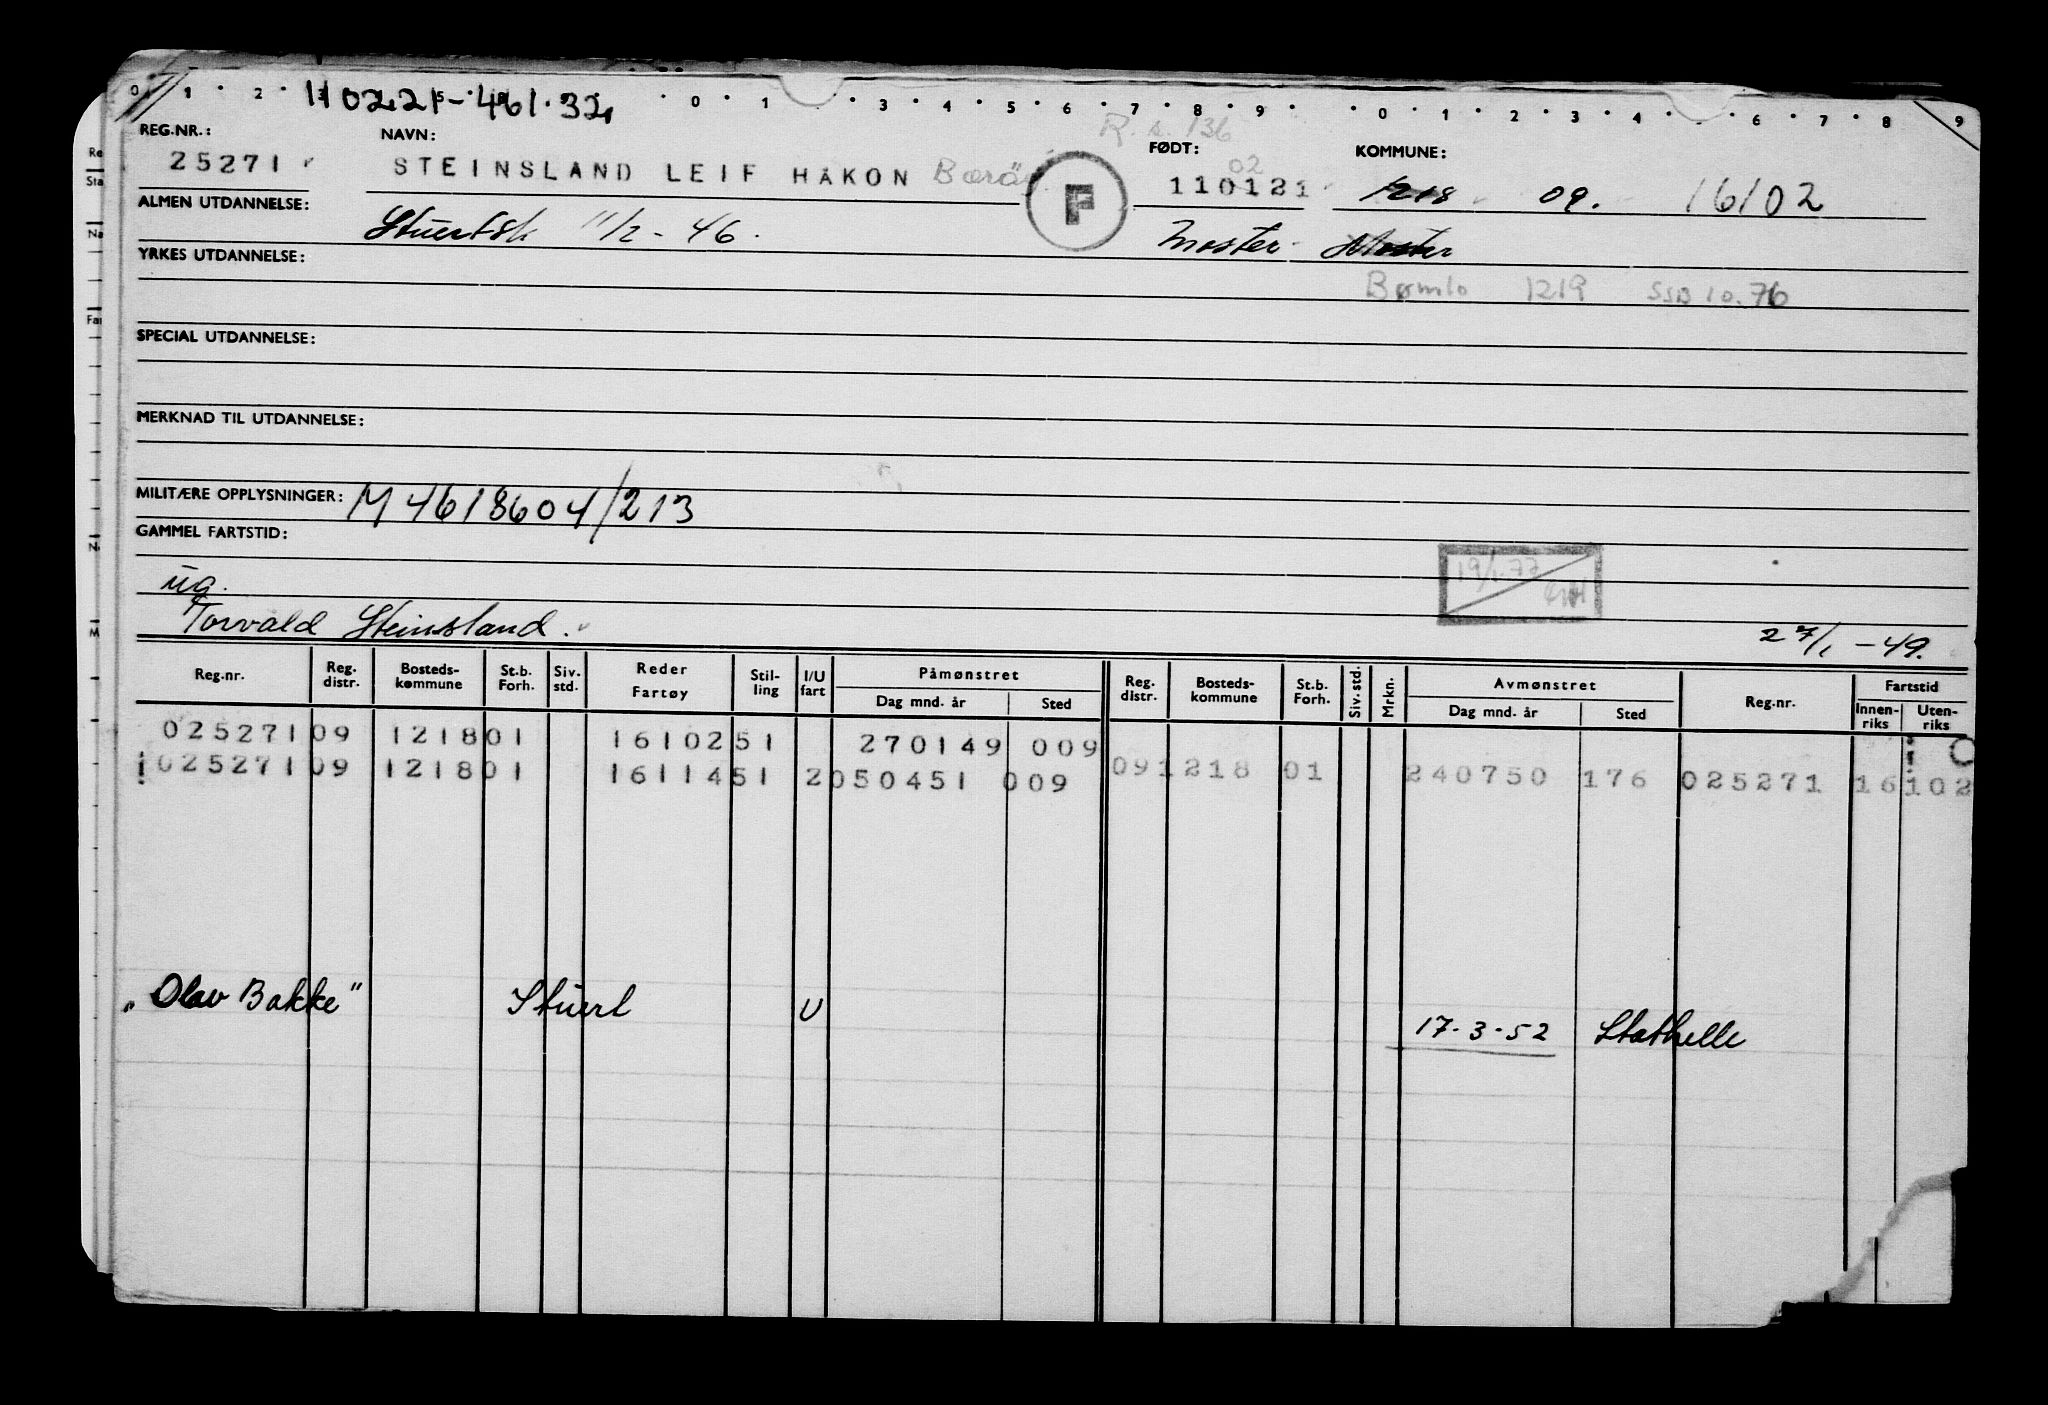 0 1 2 5 0 1 3 4 5 6 7 8 9 0 1 2 3 4 6 7 8 9
110221-461.32
REG.NR.: NAVN: R.s. 136 FØDT: KOMMUNE:
25271 STEINSLAND LEIF HÅKON F 02 110121 1218 09. 16102
ALMEN UTDANNELSE: Stuertsk 11/2-46. Moster Moster
YRKES UTDANNELSE:
Bømlo 1219 SSB 10.76
SPECIAL UTDANNELSE:
MERKNAD TIL UTDANNELSE:
MILITÆRE OPPLYSNINGER: M 4618604/213
GAMMEL FARTSTID:
19/1-77
ug.
Torvald Steinsland. 27/1-49.
Reg.nr. Reg. distr. Bosteds-kommune St.b. Forh. Siv. std. Reder Fartøy Stil-ling I/U fart Påmønstret Dag mnd. år Sted Reg. distr. Bosteds-kommune St.b. Forh. Siv. std. Mrkn. Avmønstret Dag mnd. år Sted Reg.nr. Fartstid Innen-riks Uten-riks
025271 09 1218 01 16102 51 270149 009
025271 09 1218 01 16114 51 2 050451 009 09 1218 01 240750 176 025271 16 102
„Olav Bakke" Stuert U
17.3.52 Stathelle